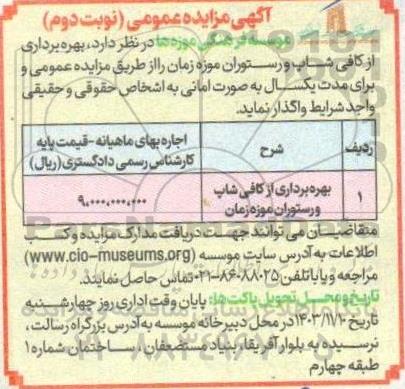 آگهی مزایده عمومی (نوبت دوم)
موسسه فرهنگی موزه‌ها در نظر دارد، بهره‌برداری
از کافی شاپ و رستوران موزه زمان را از طریق مزایده عمومی و
برای مدت یکسال به صورت امانی به اشخاص حقوقی و حقیقی
واجد شرایط واگذار نماید.
ردیف شرح اجاره بهای ماهیانه - قیمت پایه
کارشناس رسمی دادگستری (ریال)
۱ بهره‌برداری از کافی شاپ ۹,۰۰۰,۰۰۰,۰۰۰
و رستوران موزه زمان
متقاضیان می توانند جهت دریافت مدارک مزایده و کسب
اطلاعات به آدرس سایت موسسه (www.cio-museums.org)
مراجعه و یا با تلفن ۸۶۰۸۸۰۲۵-۰۲۱ تماس حاصل نمایند.
تاریخ و محل تحویل پاکت‌ها: پایان وقت اداری روز چهارشنبه
تاریخ ۱۴۰۳/۱۱/۱۰ در محل دبیرخانه موسسه به آدرس بزرگراه رسالت،
نرسیده به بلوار آفریقا، بنیاد مستضعفان، ساختمان شماره ۱
طبقه چهارم